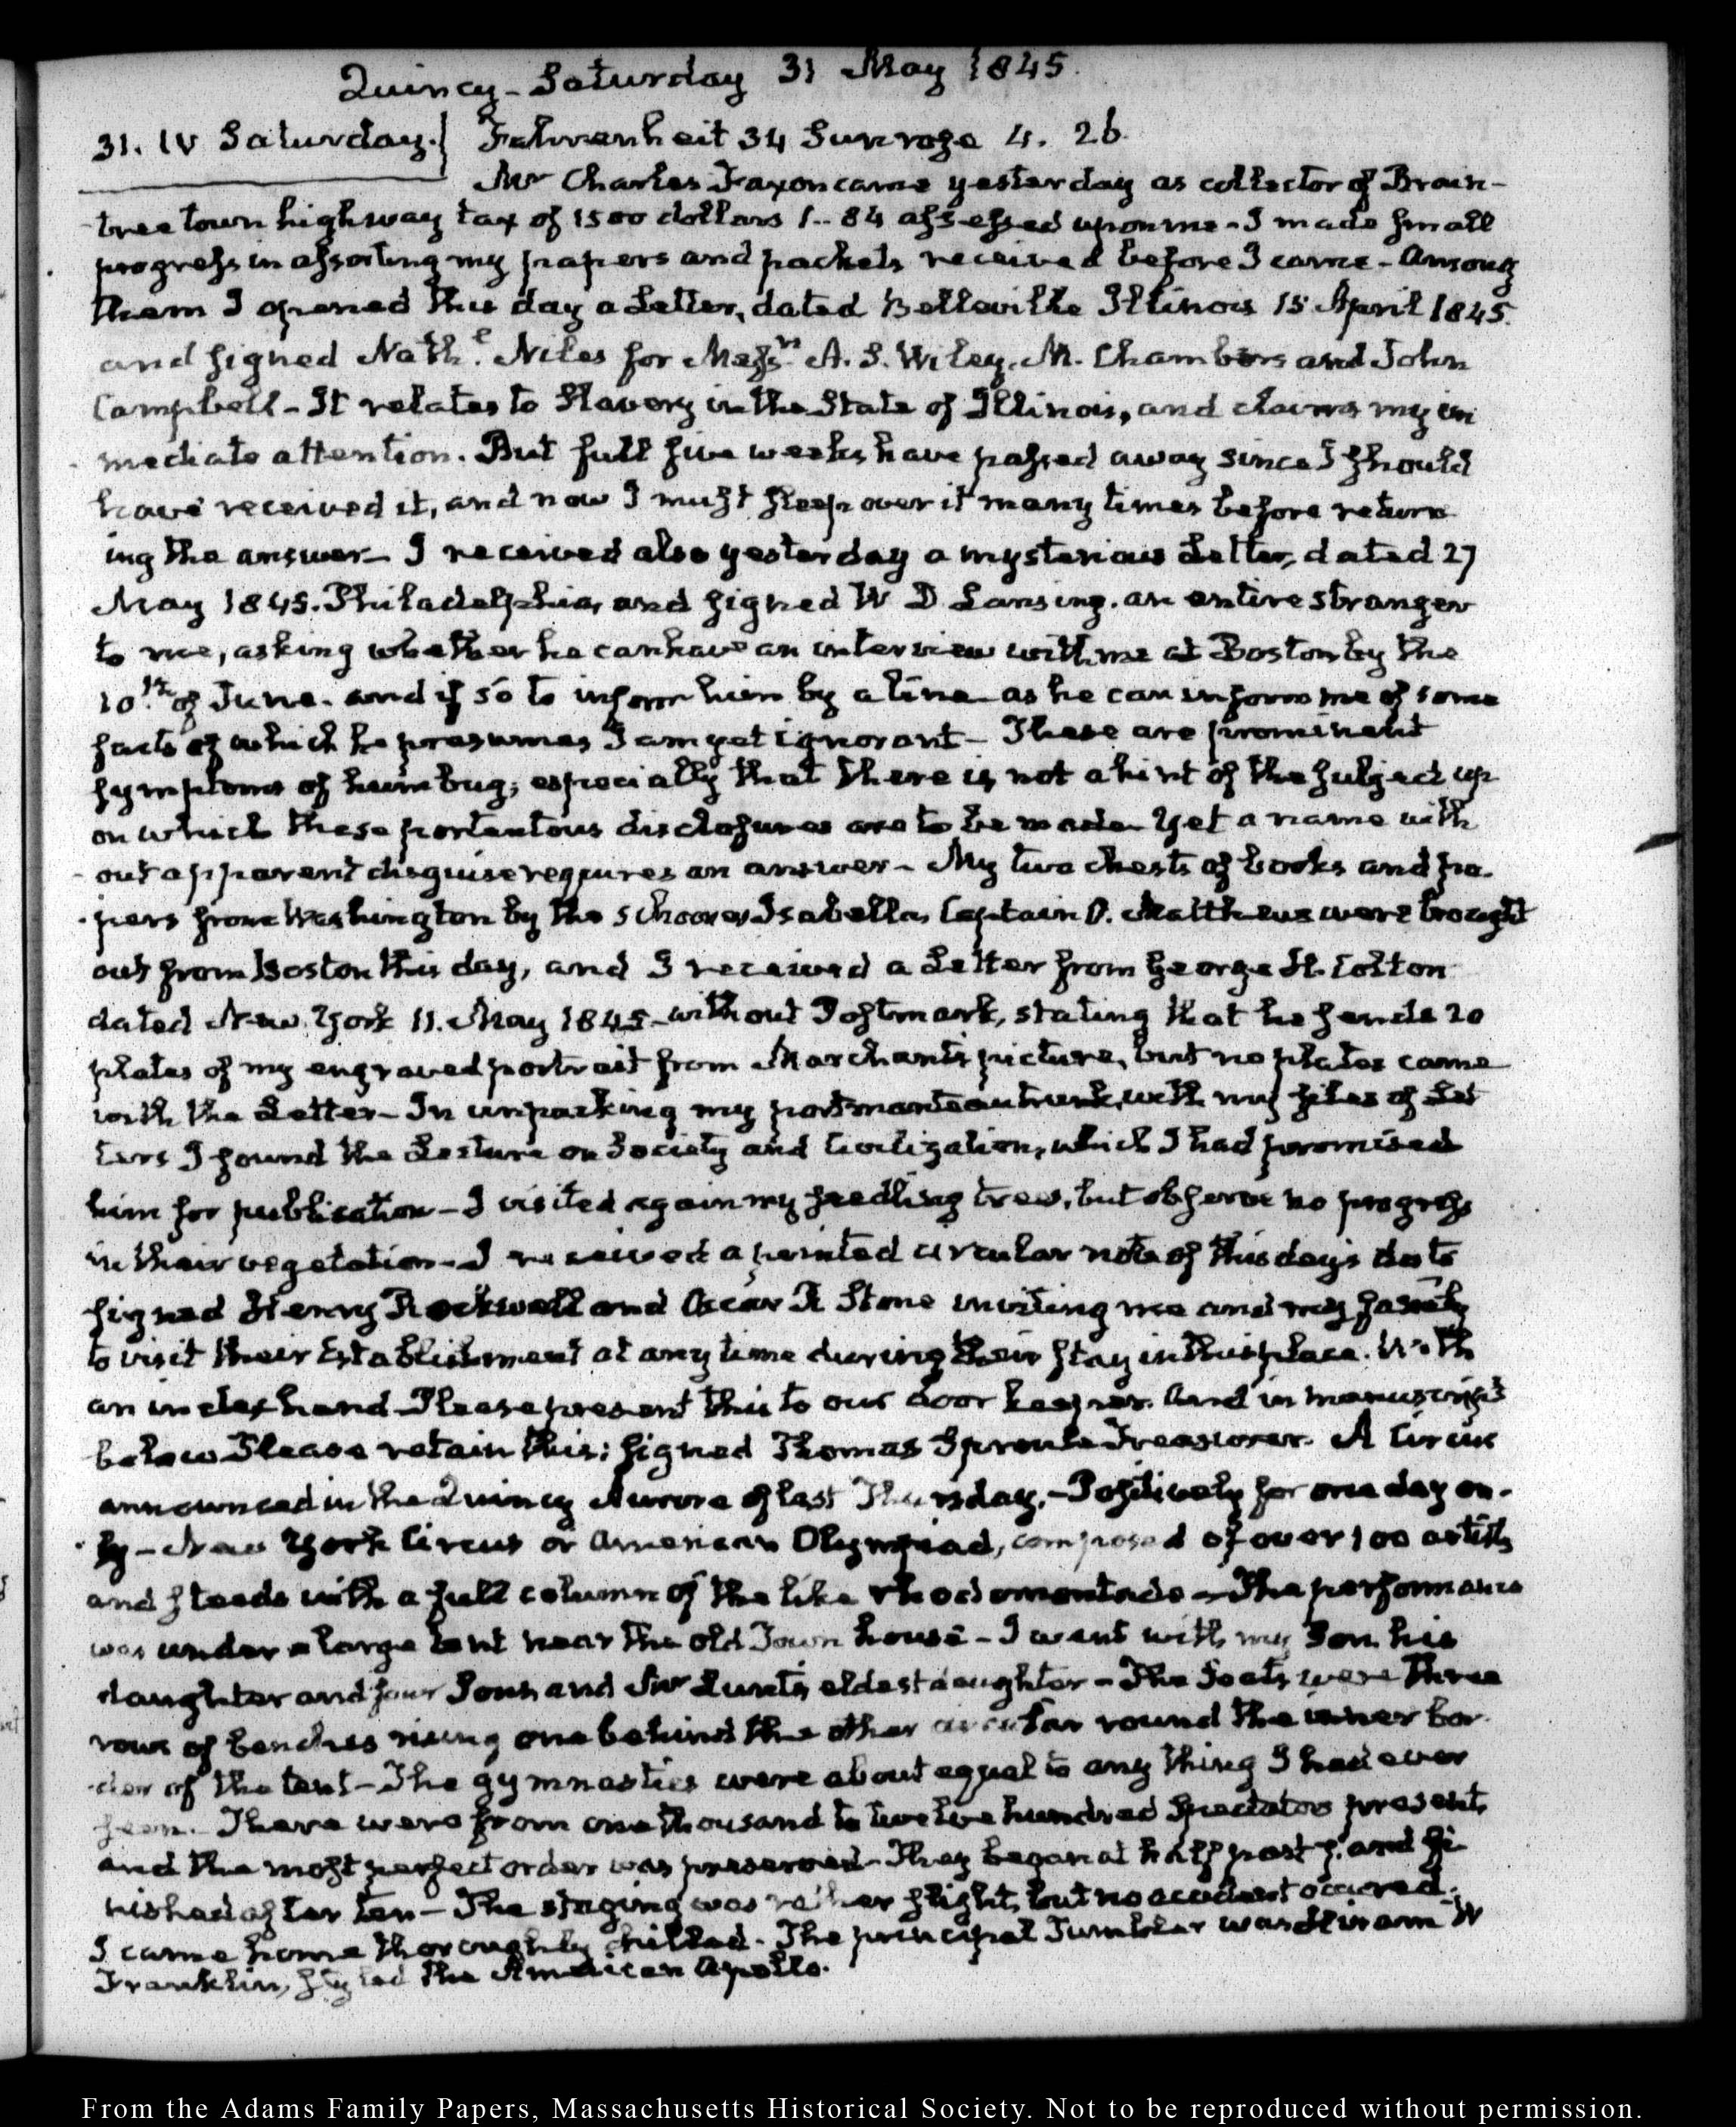 Quincy - Saturday 31 May 1845.
31. IV Saturday. Fahrenheit 34 Sun rose 4. 26
Mr Charles Faxon came yesterday as collector of Brain-
tree town highway tax of 1500 dollars 1.. 84 assessed upon me - I made small
progress in assorting my papers and packets received before I came - Among
them I opened this day a Letter, dated Belleville Illinois 15 April 1845.
and signed Nathl. Niles for Messrs A. S. Wiley, M. Chambers and John
Campbell - It relates to Slavery in the State of Illinois, and claims my im
mediate attention. But full five weeks have passed away since I should
have received it, and now I must sleep over it many times before return
ing the answer - I received also yesterday a mysterious Letter, dated 27
May 1845. Philadelphia, and signed W D Lansing. an entire stranger
to me, asking whether he can have an interview with me at Boston by the
10th. of June. and if so to inform him by a line as he can inform me of some
facts of which he presumes I am yet ignorant - These are prominent
symptoms of humbug; especially that there is not a hint of the subject up
on which these portentous disclosures are to be made - Yet a name with
out apparent disguise requires an answer - My two chests of books and pa-
pers from Washington by the Schooner Isabella, Captain D. Matthews were brought
out from Boston this day, and I received a Letter from George H. Colton
dated New York 11. May 1845 - without Postmark, stating that he sends 20
plates of my engraved portrait from Marchant's picture, but no plates came
with the Letter - In unpacking my portmanteau trunk, with my files of Let
ters I found the Lecture on Society and Civilization, which I had promised
him for publication - I visited again my seedling trees, but observe no progress
in their vegetation - I received a printed circular note of this day's date
signed Henry Rockwell and Oscar R Stone inviting me and my family
to visit their Establishment at any time during their stay in this place. With
an index hand - Please present this to our door keeper. And in manuscript
below Please retain this: signed Thomas Sproule Treasurer. A Circus
announced in the Quincy Aurora of last Thursday. - Positively for one day on-
ly - New York Circus or American Olympiad, composed of over 100 artists
and steeds with a full column of the like rhodomontade - The performance
was under a large tent near the old Town house - I went with my Son his
daughter and four Sons and Mr Lunt's eldest daughter - The Seats were three
rows of benches rising one behind the other circular round the inner bor
der of the tent - The gymnastics were about equal to any thing I had ever
seen. There were from one thousand to twelve hundred Spectators present,
and the most perfect order was preserved - They began at half past 7. and fi
nished after ten - The staging was rather slight, but no accident occurred.
I came home thoroughly chilled - The principal Tumbler was Hiram W
Franklin, styled the American Apollo.
From the Adams Family Papers, Massachusetts Historical Society. Not to be reproduced without permission.